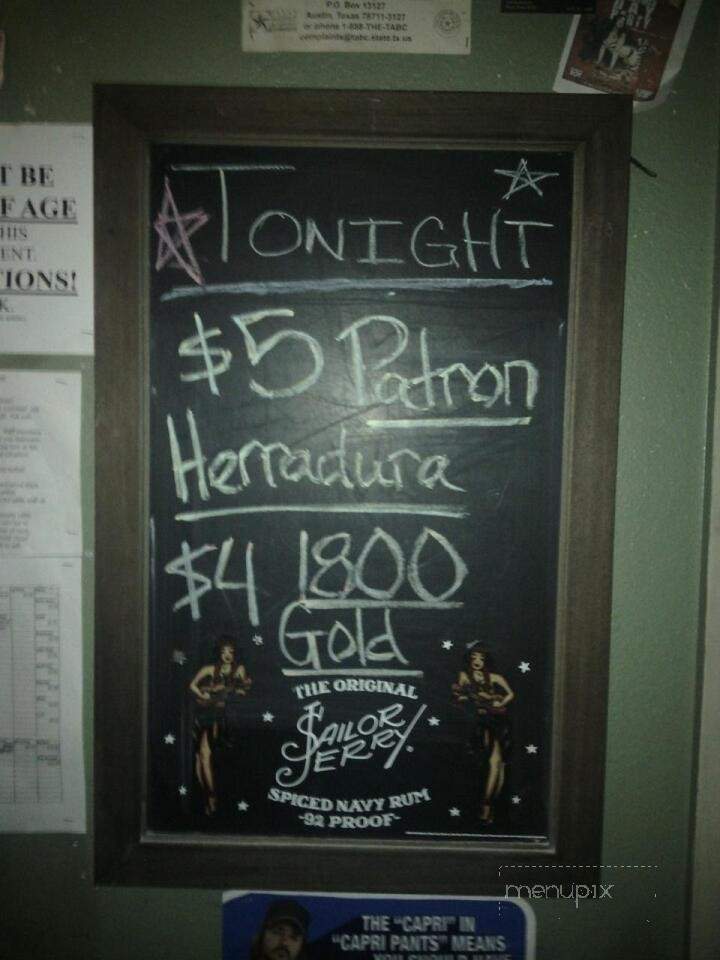 P.O. Box 13127
Austin, Texas 78711-3127
or phone 1-888-THE-TABC
complaints@tabc.state.tx.us
T BE
F AGE
HIS
ENT.
IONS!
K.
TONIGHT
$5 Patron
Herradura
$4 1800
Gold
THE ORIGINAL
SAILOR
JERRY.
SPICED NAVY RUM
-92 PROOF-
menupix
THE "CAPRI" IN
"CAPRI PANTS" MEANS
YOU SHOULD HAVE